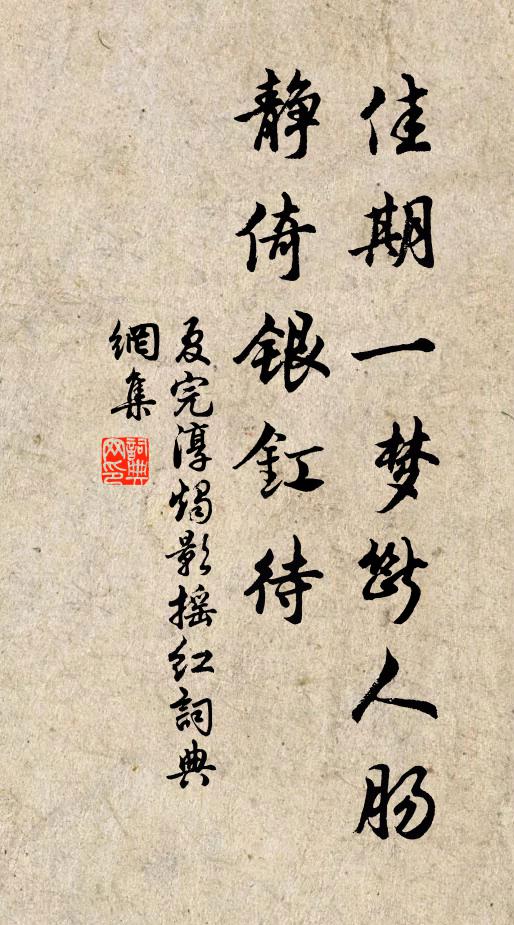 佳期一梦断人肠
静倚银釭待
夏完淳烛影摇红詞典
網集
詞典网印